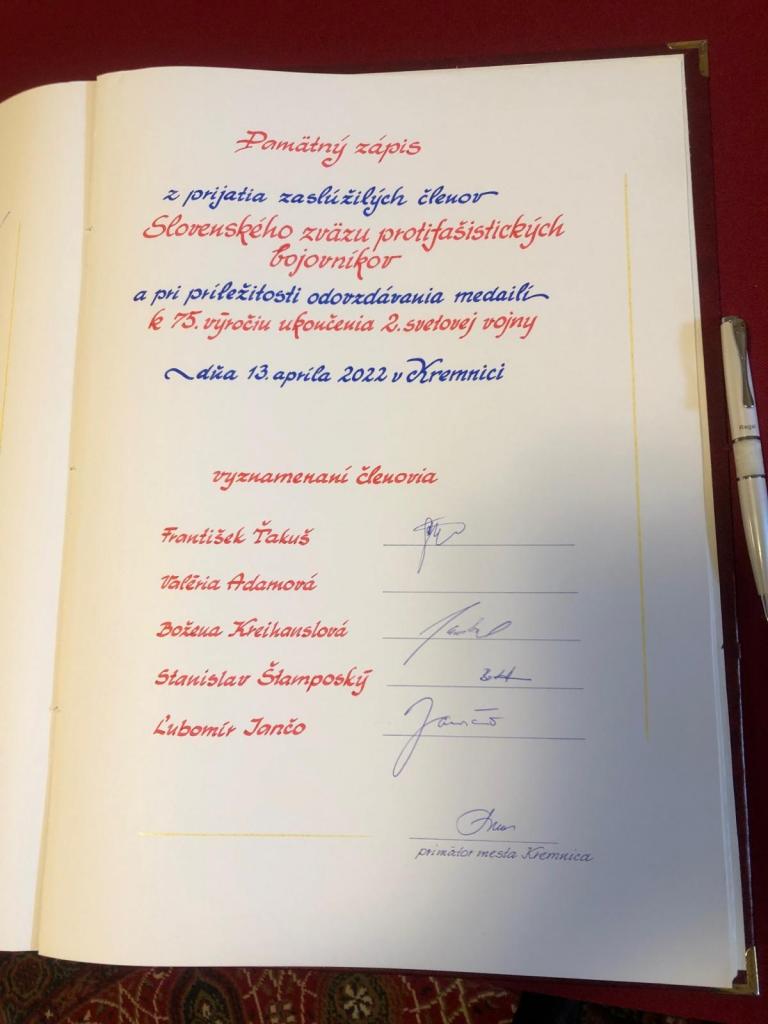 Pamätný zápis
z prijatia zaslúžilých členov
Slovenského zväzu protifašistických
bojovníkov
a pri príležitosti odovzdávania medailí
k 75. výročiu ukončenia 2. svetovej vojny
dňa 13. apríla 2022 v Kremnici
vyznamenaní členovia
František Ťakuš
Valéria Adamová
Božena Kreihanslová
Stanislav Štamposký
Ľubomír Jančo
primátor mesta Kremnica